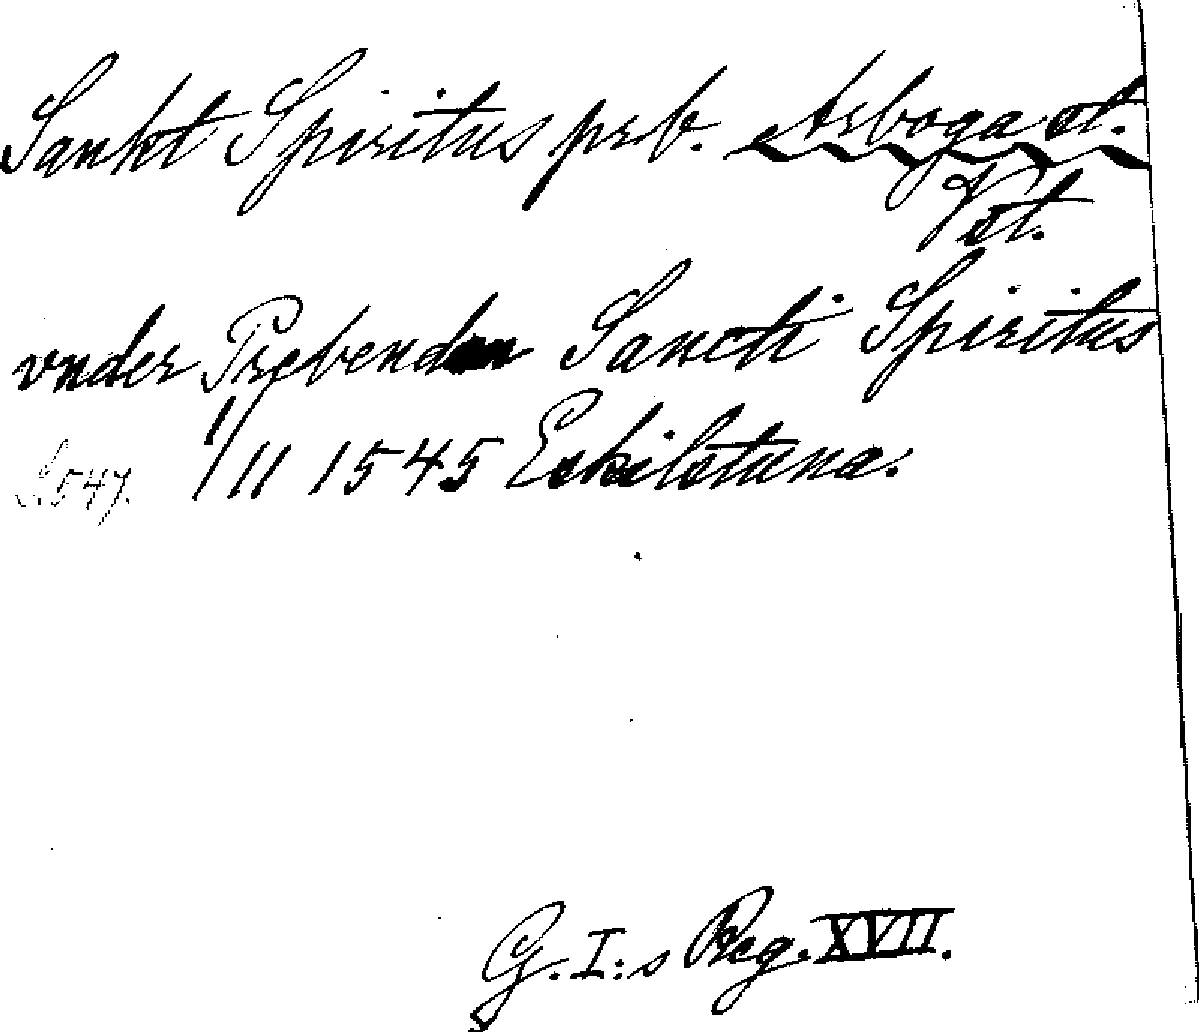 Sankt Spiritus prb. Arboga st.
Vst.
vnder Prebenden Sancti Spiritus
S. 547. 1/11 1545 Eskilstuna.
G. I:s Reg. XVII.